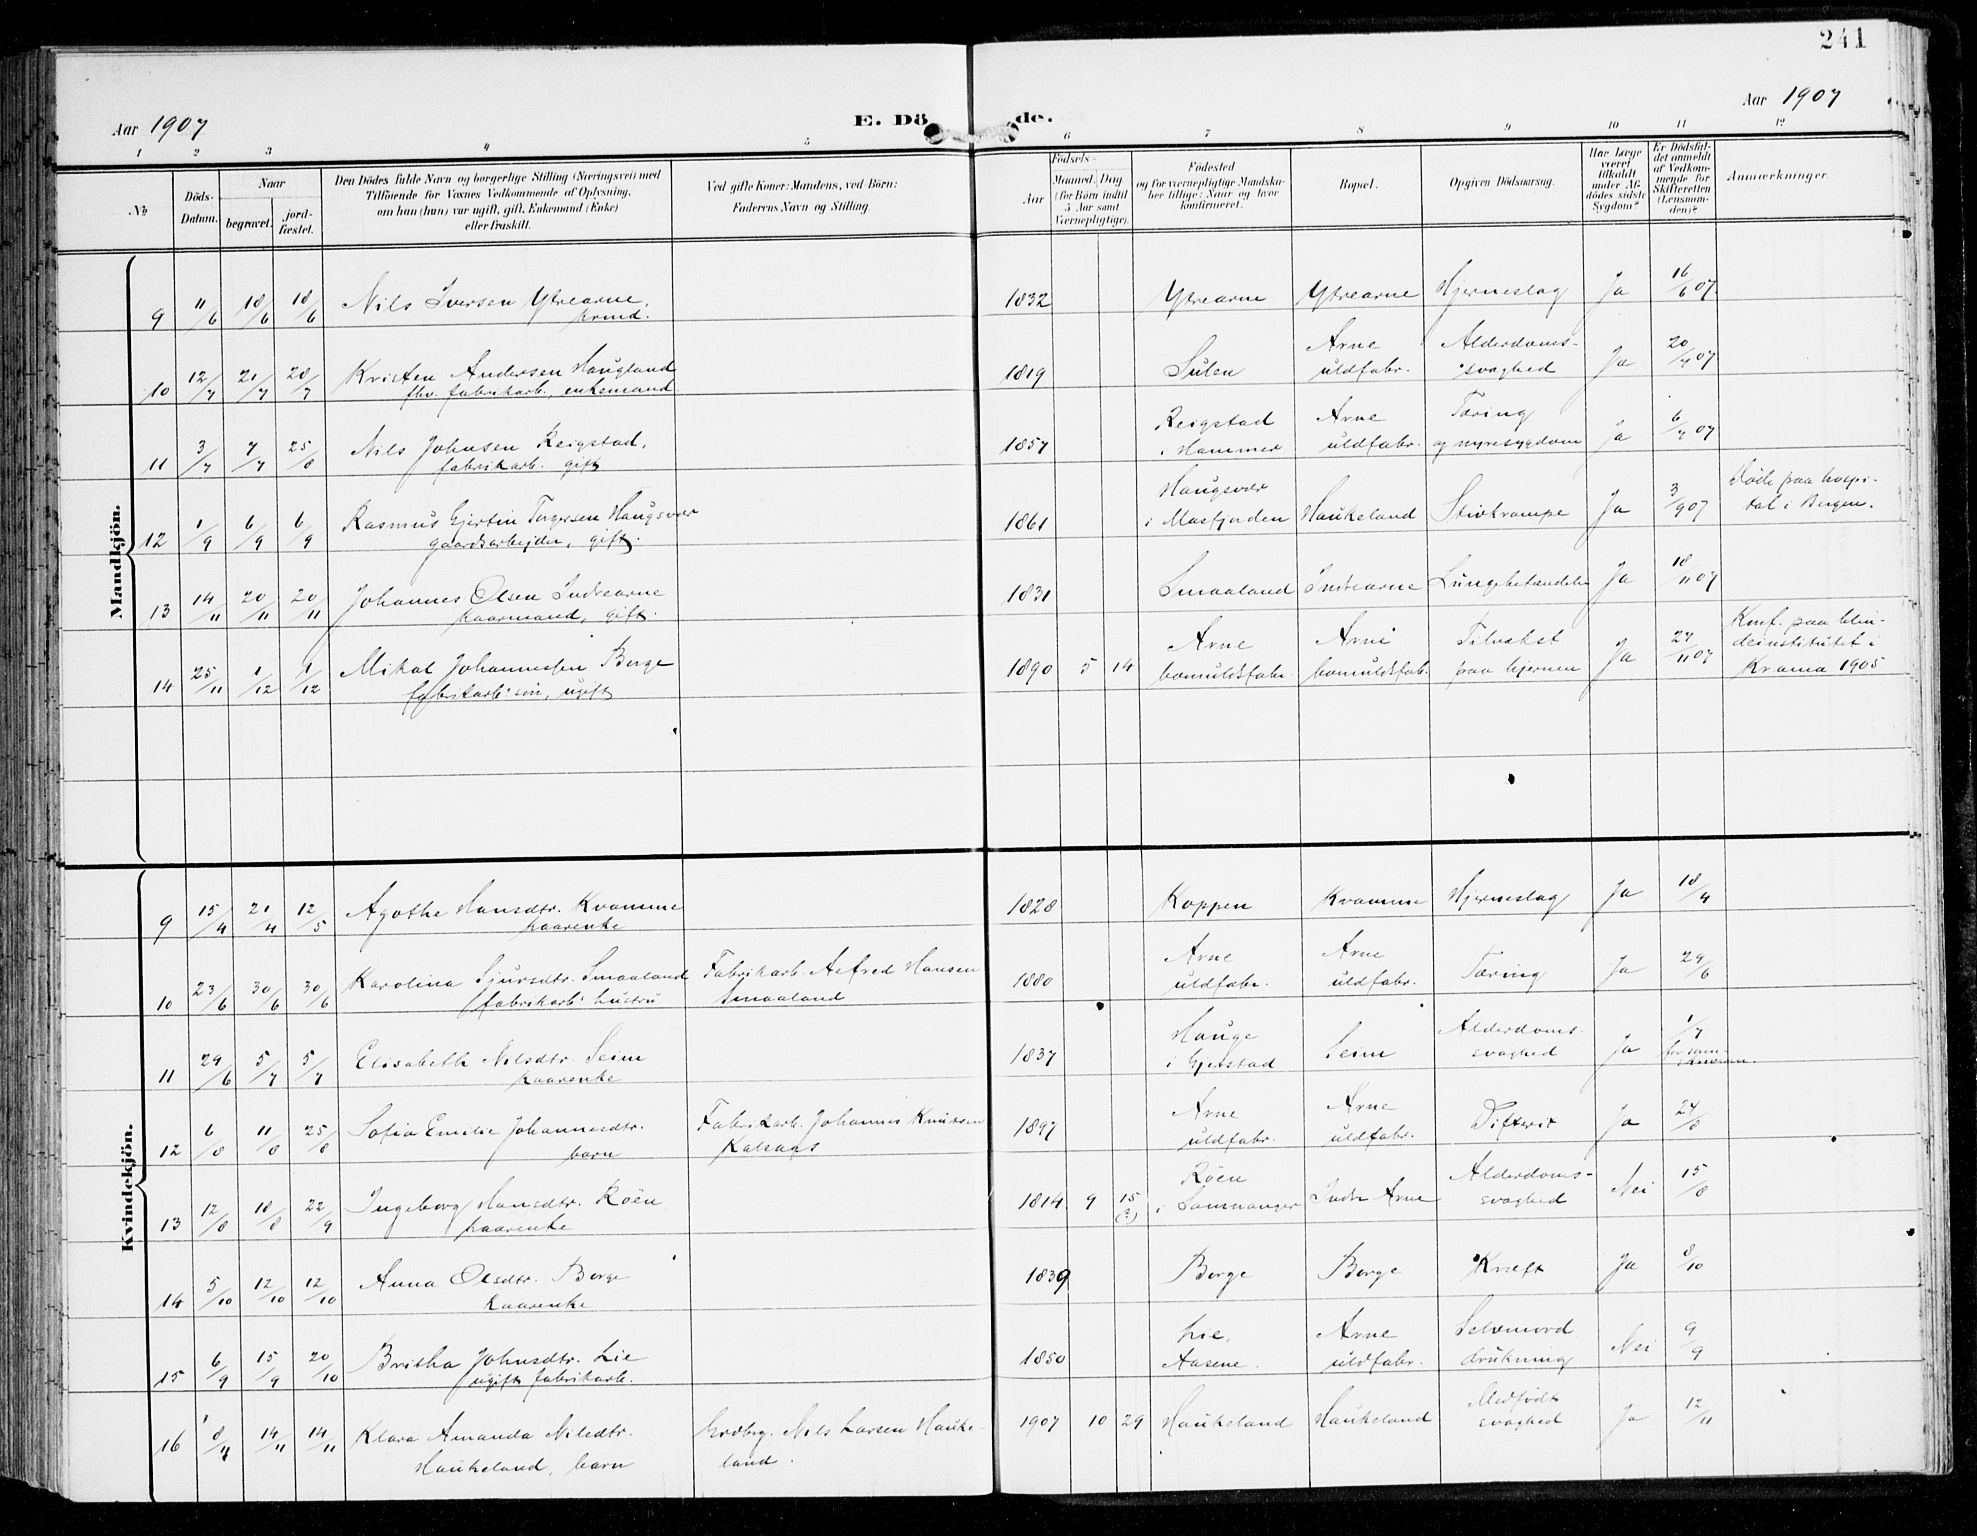 241
Aar 1907
E. Dö
de.
Aar 1907
1 2 3 4 5 6 7 8 9 10 11 12
№
Döds-
Datum.
Naar
begravet.
jord-
fæstet.
Den Dödes fulde Navn og borgerlige Stilling (Næringsvei) med
Tilföiende for Voxnes Vedkommende af Oplysning,
om han (hun) var ugift, gift, Enkemand (Enke)
eller fraskilt.
Ved gifte Koner: Mandens, ved Börn:
Faderens Navn og Stilling.
Födsels-
Aar
Maaned. Dag
(for Börn indtil
5 Aar samt
Værnepligtige).
Födested
og for værnepligtige Mandska-
ber tillige: Naar og hvor
konfirmeret.
Bopæl.
Opgiven Dödsaarsag.
Har Læge
været
tilkaldt
under Af-
dödes sidste
Sygdom?
Er Dödsfal-
det anmeldt
af Vedkom-
mende for
Skifteretten
(Lensman-
den)?
Anmærkninger.
Mandkjön.
9 11/6 18/6 18/6 Nils Iversen Ytrearne, 1832 Ytrearne Ytrearne Hjerneslag Ja 16/6 07
10 12/7 21/7 28/7 Kristen Andersen Haugland 1819 Sulen Arne Alderdoms- Ja 20/7 07
fhv. fabrikarb., enkemand uldfabr. svaghed
11 3/7 7/7 25/8 Nils Johnsen Reigstad, 1857 Reigstad Arne Tæring Ja 6/7 07
fabrikarb. gift i Hammer uldfabr. og nyresygdom
12 1/9 6/9 6/9 Rasmus Gjertin Torgersen Haugsvær 1861 Haugsvær Haukeland Stivkrampe Ja 3/9 07 Døde paa hospi-
gaardsarbejder, gift. i Masfjorden tal i Bergen.
13 14/11 20/11 20/11 Johannes Olsen Indrearne 1831 Smaaland Indrearne Lungebetændelse Ja 18/11 07
kaarmand, gift.
14 25/11 1/12 1/12 Mikal Johannessen Borge 1890 5 14 Arne Arne Tilvækst Ja 27/11 07 Konf. paa blin-
fabrikarb. søn, ugift bomuldsfabr. bomuldsfab. paa hjernen deinstitutet i
Krania 1905
Kvindekjön.
9 15/4 21/4 12/5 Agathe Hansdtr. Kvamme 1828 Koppen Kvamme Hjerneslag Ja 18/4
kaarenke
10 23/6 30/6 30/6 Karolina Sjursdtr. Smaaland Fabrikarb. Alfred Hansen 1880 Arne Arne Tæring Ja 29/6
fabrikarb. hustru Smaaland uldfabr. uldfabr.
11 29/6 5/7 5/7 Elisabeth Nilsdtr. Seim 1837 Hauge Seim Alderdoms- Ja 1/7
kaarenke i Gjerstad svaghed for soren-
skriveren.
12 6/8 11/8 25/8 Sofia Emilie Johannesdtr. Fabrikarb. Johannes Knutsen 1897 Arne Arne Difterit Ja 24/8
barn Kalsaas uldfabr. uldfabr.
13 12/8 18/8 22/9 Ingeborg Hansdtr. Röen 1814 9 15 (?) Röen Indre Arne Alderdoms- Nei 15/8
kaarenke i Samnanger svaghed
14 5/10 12/10 12/10 Anna Olsdtr. Borge 1839 Borge Borge Kræft Ja 8/10
kaarenke
15 6/9 15/9 20/10 Britha Johnsdtr. Lie 1850 Lie, Arne Selvmord Nei 9/9
ugift fabrikarb. Aasene. uldfabr. drukning
16 8/11 14/11 14/11 Klara Amanda Nilsdtr. Grdbrg. Nils Larsen Hauke- 1907 10 29 Haukeland Haukeland Medfødt Ja 12/11
Haukeland, barn land. svaghed